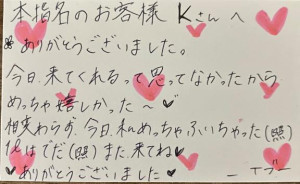 本指名のお客様 Kさんへ
ありがとうございました。
今日、来てくれるって思ってなかったから
めっちゃ嬉しかった〜♥
相変わらず、今日、私めっちゃふいちゃった(照)
はでだ(照)また、来てね♥
♥ありがとうございました♥